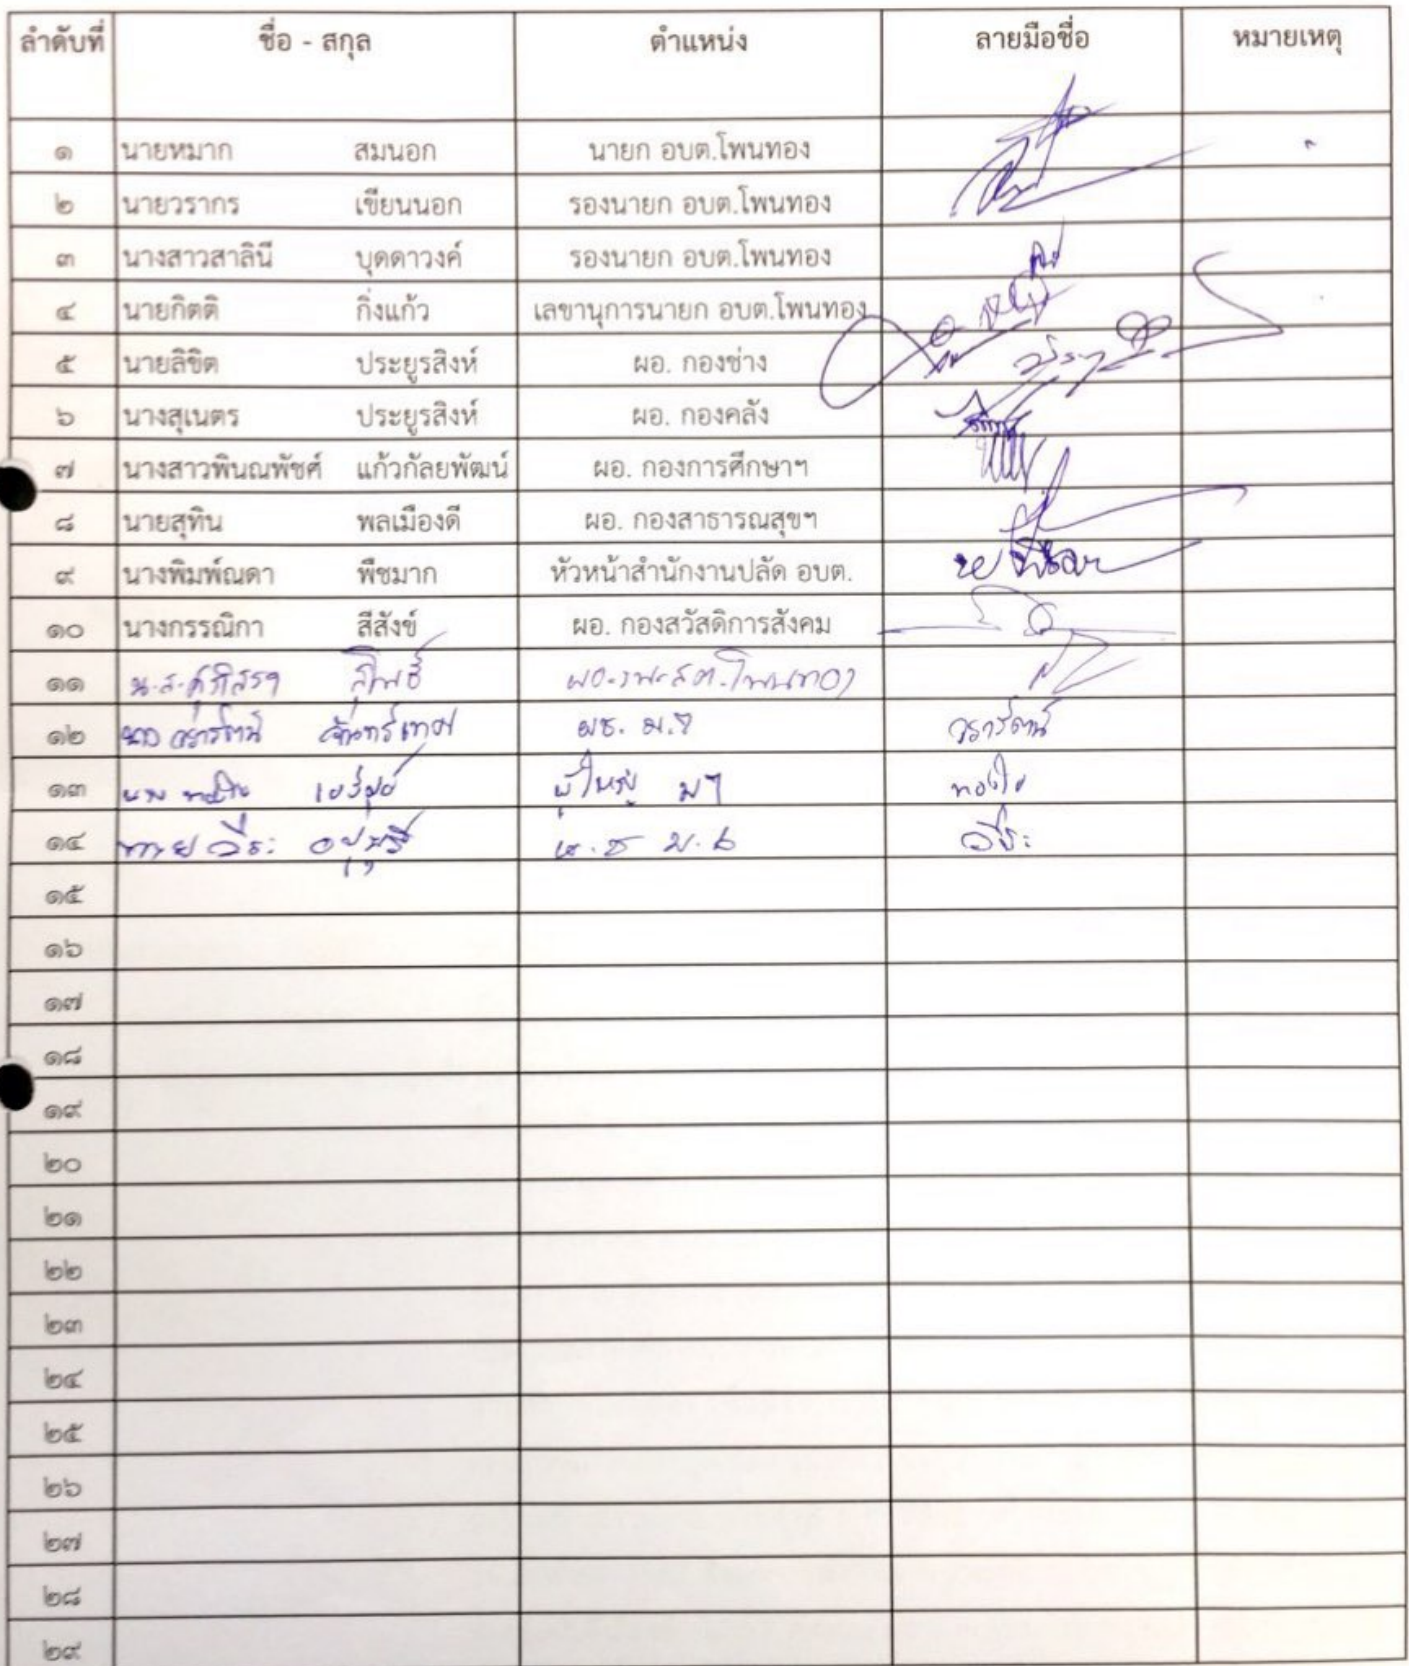 ลำดับที่ ชื่อ - สกุล ตำแหน่ง ลายมือชื่อ หมายเหตุ
๑ นายหมาก สมนอก นายก อบต.โพนทอง
๒ นายวรากร เขียนนอก รองนายก อบต.โพนทอง
๓ นางสาวสาลินี บุดดาวงค์ รองนายก อบต.โพนทอง
๔ นายกิตติ กิ่งแก้ว เลขานุการนายก อบต.โพนทอง
๕ นายลิขิต ประยูรสิงห์ ผอ. กองช่าง
๖ นางสุเนตร ประยูรสิงห์ ผอ. กองคลัง
๗ นางสาวพินณพัชศ์ แก้วกัลยพัฒน์ ผอ. กองการศึกษาฯ
๘ นายสุทิน พลเมืองดี ผอ. กองสาธารณสุขฯ
๙ นางพิมพ์ณดา พืชมาก หัวหน้าสำนักงานปลัด อบต.
๑๐ นางกรรณิกา สีสังข์ ผอ. กองสวัสดิการสังคม
๑๑ น.ส. ผอ.รพ.สต.โพนทอง
๑๒ วรารัตน์ ผช. ม.7 วรารัตน์
๑๓ นาง
๑๔ นาย วีระ ผ.ช ม.6 วีระ
๑๕
๑๖
๑๗
๑๘
๑๙
๒๐
๒๑
๒๒
๒๓
๒๔
๒๕
๒๖
๒๗
๒๘
๒๙